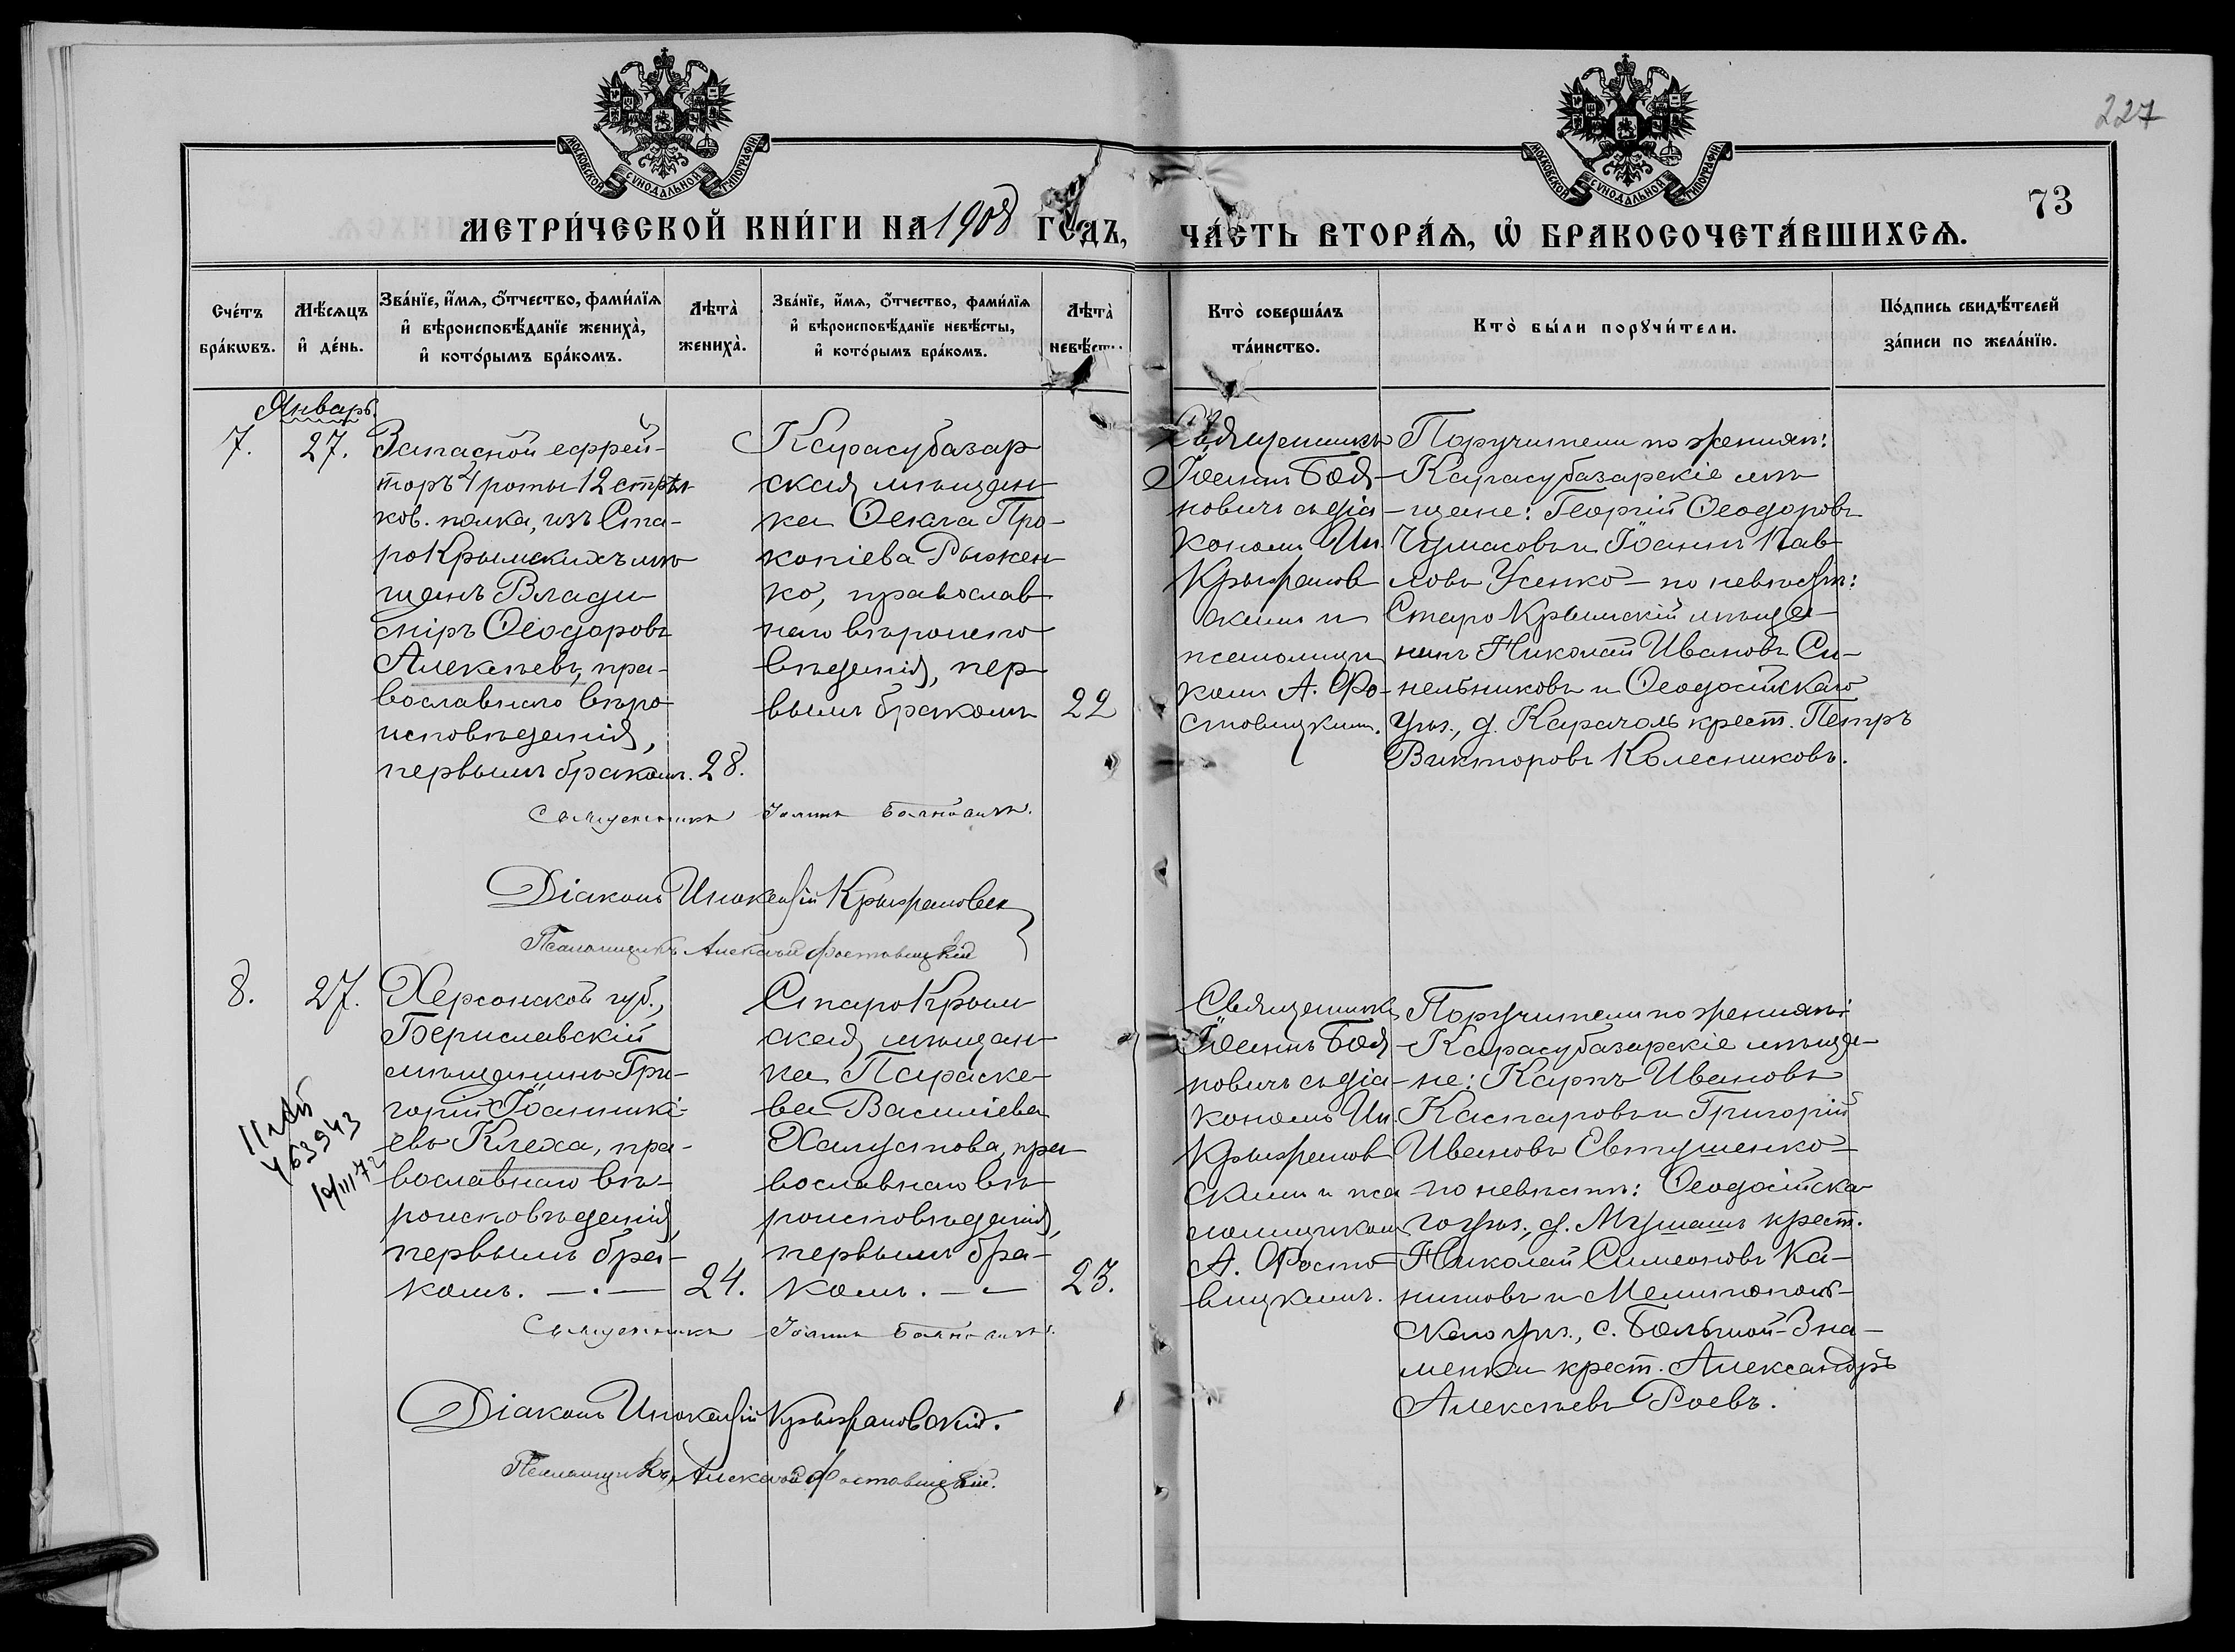 227
73
МОСКОВСКОЙ СѴНОДАЛЬНОЙ ТИПОГРАФІИ
МОСКОВСКОЙ СѴНОДАЛЬНОЙ ТИПОГРАФІИ
МЕТРИ́ЧЕСКОЙ КНИ́ГИ НА 1908 ГОДЪ, ЧА́СТЬ ВТОРА́Ѧ, Ѽ БРАКОСОЧЕТА́ВШИХСѦ.
Сче́тъ бра́кѡвъ.
Мѣ́сѧцъ и҆ де́нь.
Зва́нїе, и҆́мѧ, ѻ҆́тчество, фами́лїѧ
и҆ вѣроисповѣ́данїе жениха̀,
и҆ кото́рымъ бра́комъ.
Лѣта̀ жениха̀.
Зва́нїе, и҆́мѧ, ѻ҆́тчество, фами́лїѧ
и҆ вѣроисповѣ́данїе невѣ́сты,
и҆ кото́рымъ бра́комъ.
Лѣта̀
Кто̀ соверша́лъ
та́инство.
Кто̀ бы́ли порꙋчи́тели.
По́дпись свидѣ́телей
за́писи по жела́нїю.
Январь.
7.
27.
Запасной ефрей-
торъ 4 роты 12 стрѣл
ков. полка, изъ Ста-
роКрымскихъ мѣ
щанъ Влади
міръ Ѳеодоровъ
Алексѣевъ, пра-
вославнаго вѣро
исповѣданія,
первымъ бракомъ. 28.
Карасубазар
ская мѣщан
ка Ѳекла Про-
копіева Рыжен
ко, православ
наго вѣроиспо
вѣданія, пер
вымъ бракомъ 22
Священникъ
Іоаннъ Боя-
новичъ съ діа-
кономъ Ин.
Крыжанов
скимъ и
псаломщи
комъ А. Фо-
стовицкимъ.
Поручители по женихѣ:
Карасубазарскіе мѣ
щане: Георгій Ѳеодоровъ
Чумасовъ и Іоаннъ Пав-
ловъ Усенко – по невѣстѣ:
СтароКрымскій мѣща-
нинъ Николай Ивановъ Си-
нельниковъ и Ѳеодосійскаго
уѣз., д. Карачоль крест. Петръ
Викторовъ Колесниковъ.
Священникъ Іоаннъ Бояновичъ.
Діаконъ Инокентій Крыжановск
Псаломщикъ Алексѣй Фостовицкій
8.
27.
Херсонской губ.,
Бериславскій
мѣщанинъ Гри-
горій Іоанникі-
евъ Клеха, пра-
вославнаго вѣ-
роисповѣданія,
первымъ бра-
комъ. —.— 24.
СтароКрым
ская мѣщан-
ка Параске-
ва Василіева
Халустова, пра
вославнаго вѣ
роисповѣданія,
первымъ бра-
комъ. —.— 23.
Священникъ
Іоаннъ Боя-
новичъ съ діа-
кономъ Ин.
Крыжанов
скимъ и пса
ломщикомъ
А. Фосто
вицкимъ.
Поручители по женихѣ:
Карасубазарскіе мѣща-
не: Карпъ Ивановъ
Каспаровъ и Григорій
Ивановъ Евтушенко –
по невѣстѣ: Ѳеодосійска
го уѣз., д. Мушашъ крест.
Николай Симеоновъ Ка-
нимовъ и Мелитополь-
скаго уѣз., с. Большой-Зна-
менки крест. Александръ
Алексѣевъ Роевъ.
463943
10/III 72
Священникъ Іоаннъ Бояновичъ.
Діаконъ Инокентій Крыжановскій.
Псаломщикъ Алексѣй Фостовицкій.